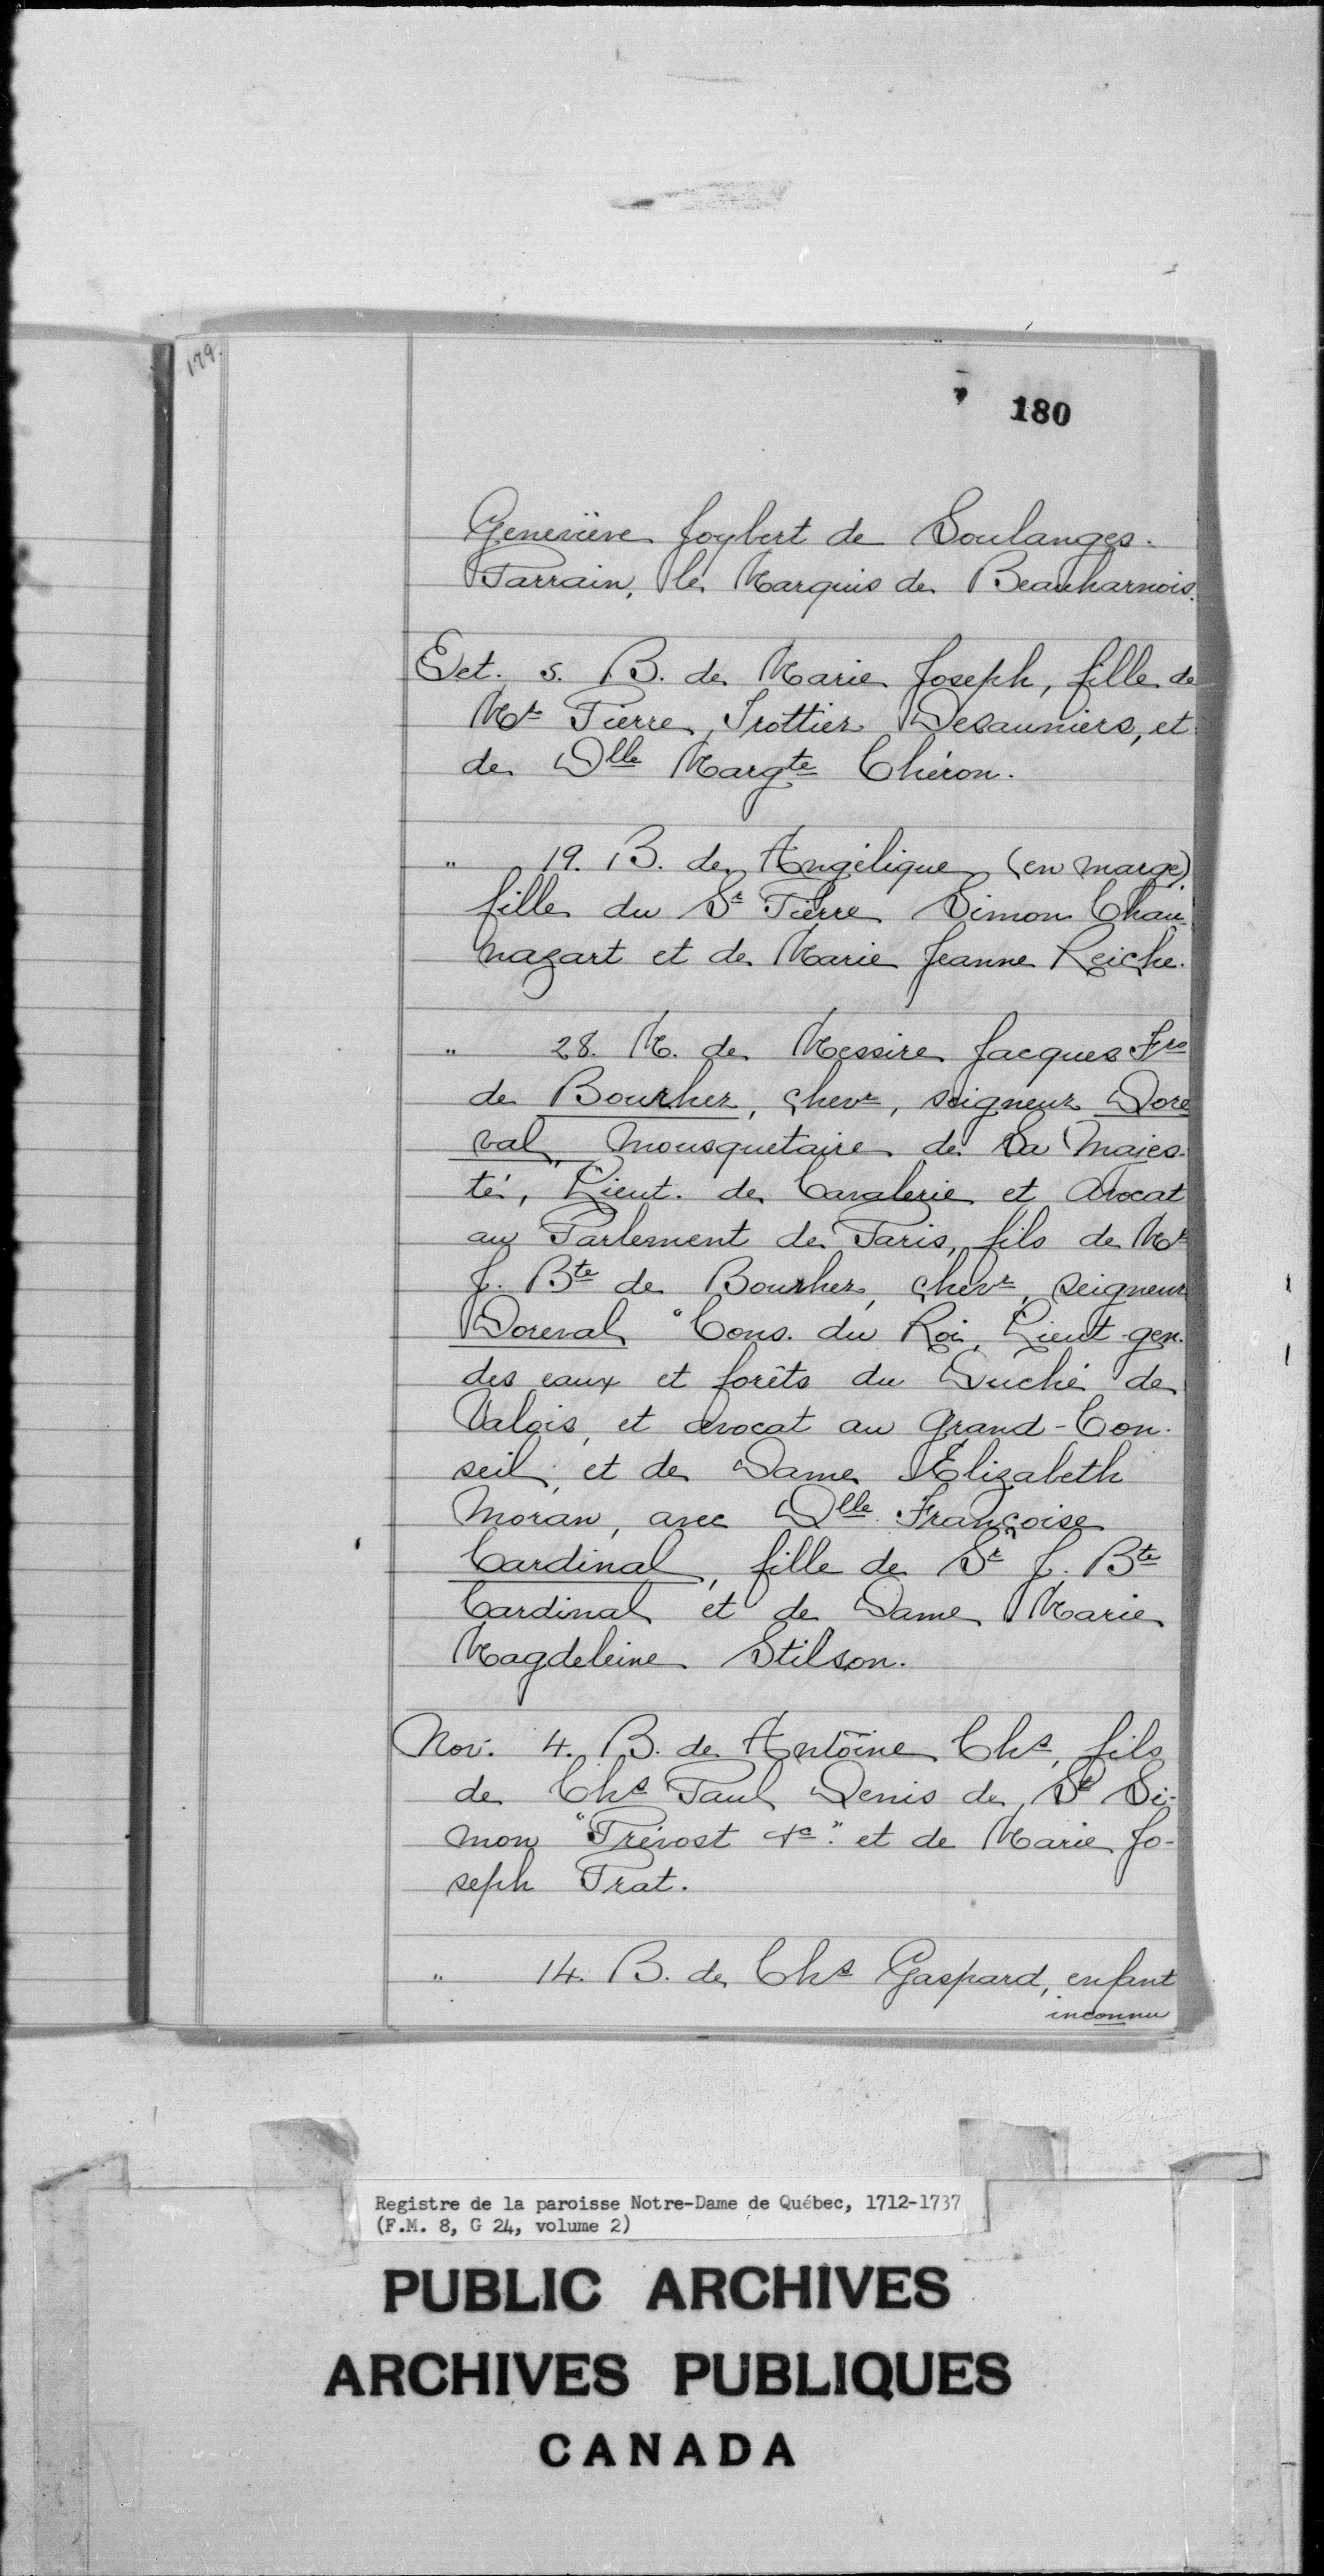 179.
180
Geneviève Joybert de Soulanges.
Parrain, le Marquis de Beauharnois.
Oct. 5. B. de Marie Joseph, fille de
Mr Pierre, Trottier Desauniers, et
de Dlle Margte Chéron.
" 19. B. de Angélique (en marge)
fille du Sr Pierre Simon Chau-
nazart et de Marie Jeanne Reiche.
" 28. M. de Messire Jacques Frs
de Bourhez, chevr, seigneur Dore
val, mousquetaire de Sa Majes-
té, Lieut. de Cavalerie et Avocat
au Parlement de Paris, fils de Mr
J. Bte de Bourhez, chevr, seigneur
Doreval "Cons. du Roi, Lieut-gen.
des eaux et forêts du Duché de
Valois, et avocat au Grand-Con-
seil, et de Dame Elizabeth
Moran, avec Dlle Françoise
Cardinal, fille de Sr J. Bte
Cardinal et de Dame Marie
Magdeleine Stilson.
Nov. 4. B. de Antoine Chs, fils
de Chs Paul Denis de St Si-
mon "Prévost &c." et de Marie Jo-
seph Prat.
" 14. B. de Chs Gaspard, enfant
inconnu
Registre de la paroisse Notre-Dame de Québec, 1712-1737
(F.M. 8, G 24, volume 2)
PUBLIC ARCHIVES
ARCHIVES PUBLIQUES
CANADA